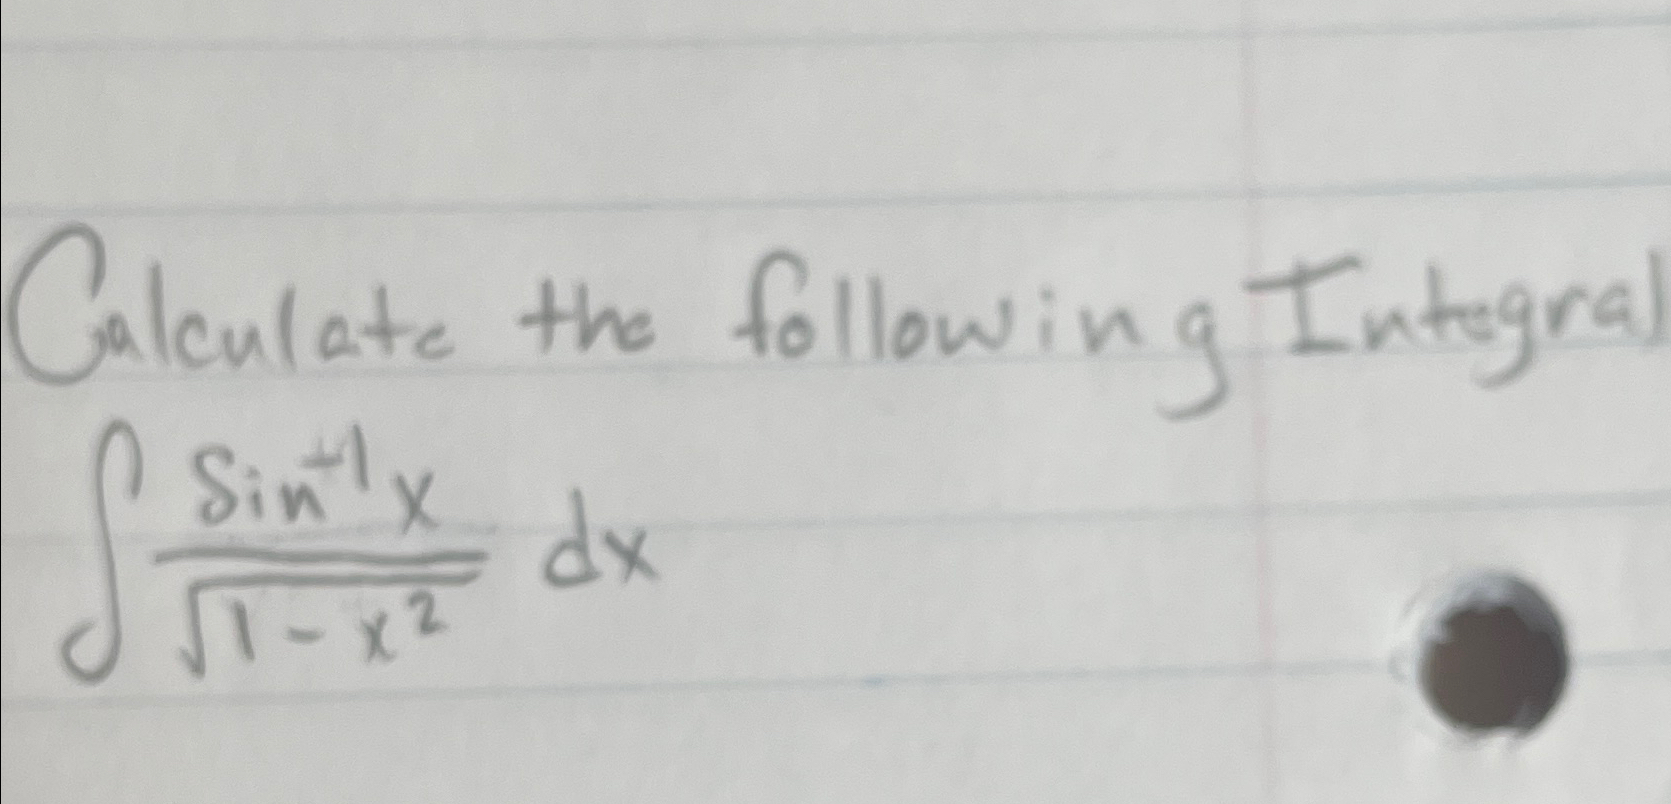 Calculate the following Integral
∫ Sin⁻¹x / √(1 - x²) dx